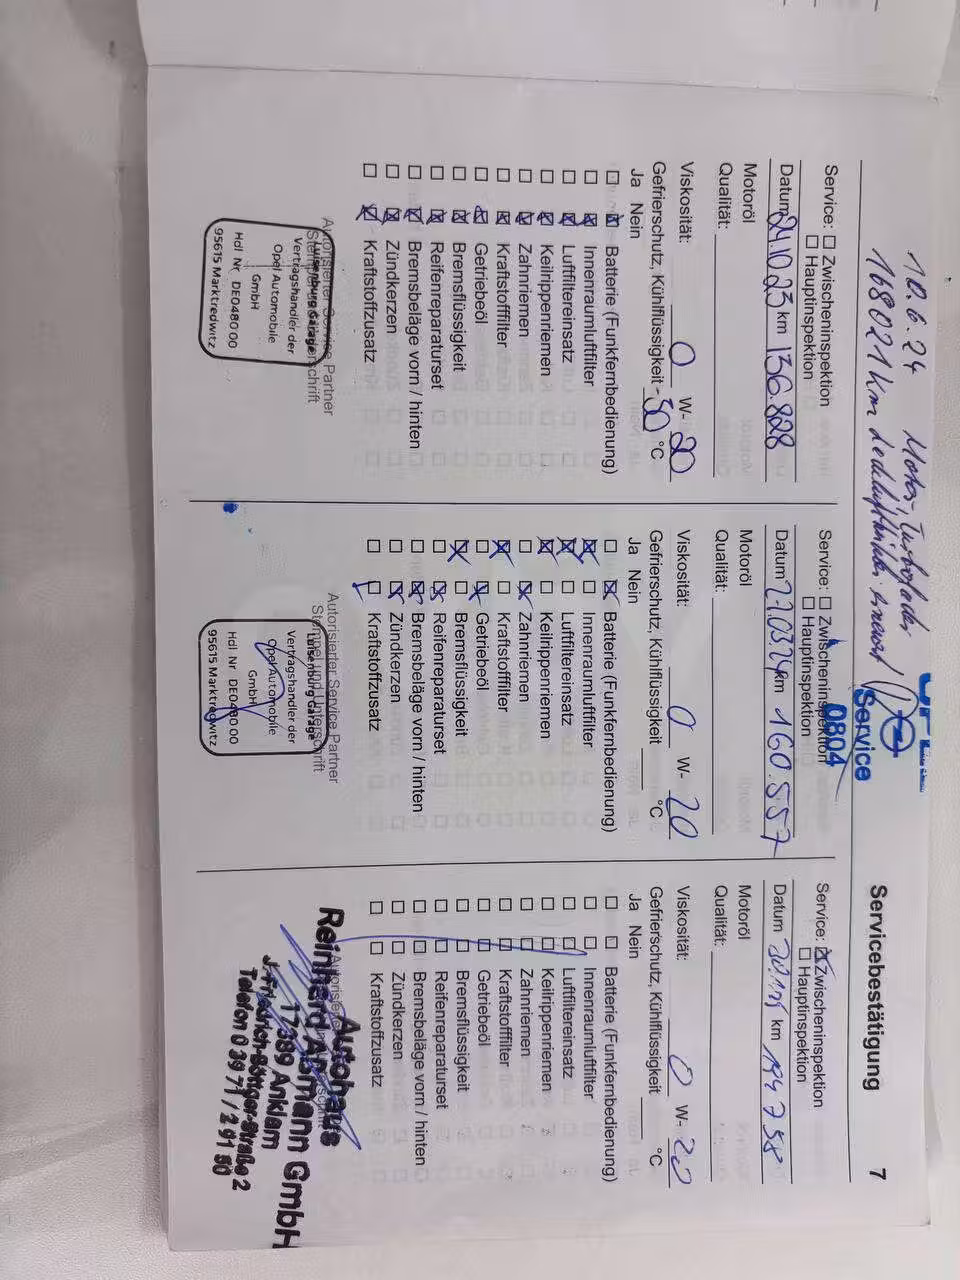 10.6.24 Motor, Turbolader
168021 km
OPEL
Service
0804
Servicebestätigung 7
Service: Zwischeninspektion
Hauptinspektion
Datum 24.10.23 km 136.828
Motoröl
Qualität:
Viskosität: 0 W- 20
Gefrierschutz, Kühlflüssigkeit -30 °C
Ja Nein
Batterie (Funkfernbedienung)
Innenraumluftfilter
Luftfiltereinsatz
Keilrippenriemen
Zahnriemen
Kraftstofffilter
Getriebeöl
Bremsflüssigkeit
Reifenreparaturset
Bremsbeläge vorn / hinten
Zündkerzen
Kraftstoffzusatz
Autorisierter Service Partner
Stempel und Unterschrift
Luisenburg Garage
Vertragshändler der
Opel Automobile
GmbH
Hdl Nr DE0480 00
95615 Marktredwitz
Service: Zwischeninspektion
Hauptinspektion
Datum 27.03.24 km 160.557
Motoröl
Qualität:
Viskosität: 0 W- 20
Gefrierschutz, Kühlflüssigkeit °C
Ja Nein
Batterie (Funkfernbedienung)
Innenraumluftfilter
Luftfiltereinsatz
Keilrippenriemen
Zahnriemen
Kraftstofffilter
Getriebeöl
Bremsflüssigkeit
Reifenreparaturset
Bremsbeläge vorn / hinten
Zündkerzen
Kraftstoffzusatz
Autorisierter Service Partner
Stempel und Unterschrift
Luisenburg Garage
Vertragshändler der
Opel Automobile
GmbH
Hdl Nr DE0480 00
95615 Marktredwitz
Service: Zwischeninspektion
Hauptinspektion
Datum km 194 758
Motoröl
Qualität:
Viskosität: 0 W- 20
Gefrierschutz, Kühlflüssigkeit °C
Ja Nein
Batterie (Funkfernbedienung)
Innenraumluftfilter
Luftfiltereinsatz
Keilrippenriemen
Zahnriemen
Kraftstofffilter
Getriebeöl
Bremsflüssigkeit
Reifenreparaturset
Bremsbeläge vorn / hinten
Zündkerzen
Kraftstoffzusatz
Autohaus
Reinhard GmbH
17389 Anklam
J.-Friedrich-Böttger-Straße 2
Telefon 0 39 71 / 2 91 50